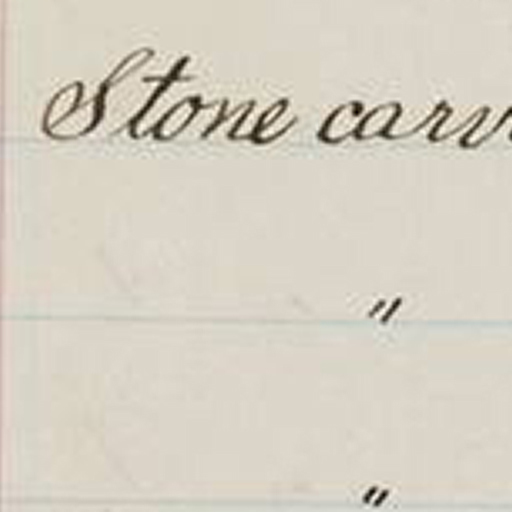 Stone carv
"
"